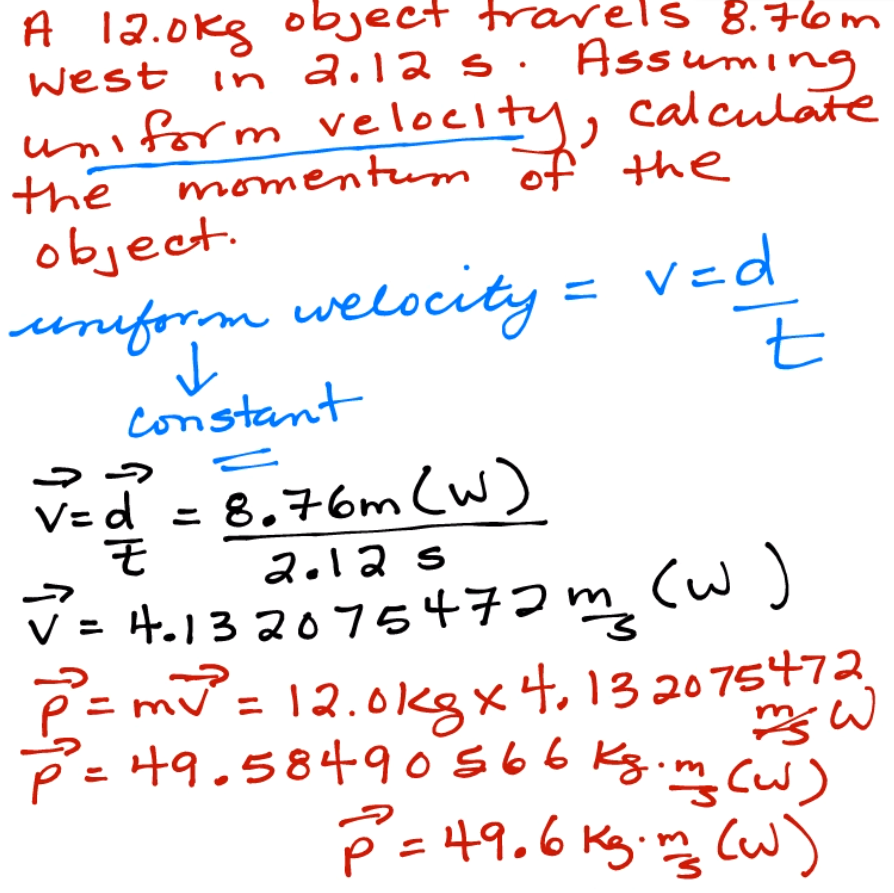 A 12.0kg object travels 8.76m
west in 2.12 s. Assuming
uniform velocity, calculate
the momentum of the
object.
uniform welocity = v=d/t
↓
constant
v⃗=d⃗/t = 8.76m(W)/2.12 s
v⃗ = 4.132075472 m/s (W)
p⃗=mv⃗ = 12.0kg x 4.132075472 m/s W
p⃗ = 49.58490566 kg·m/s (W)
p⃗ = 49.6 kg·m/s (W)